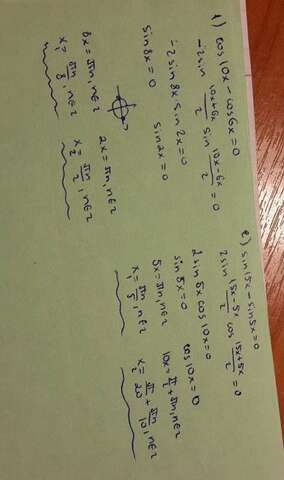 1) cos10x - cos6x = 0
-2sin (10x+6x)/2 sin (10x-6x)/2 = 0
-2sin8x · sin2x = 0
sin8x = 0 sin2x = 0
8x = πn, n∈z 2x = πn, n∈z
x₁ = πn/8, n∈z x₂ = πn/2, n∈z
2) sin15x - sin5x = 0
2sin (15x-5x)/2 cos (15x+5x)/2 = 0
2sin5x cos10x = 0
sin5x = 0 cos10x = 0
5x = πn, n∈z 10x = π/2 + πn, n∈z
x₁ = πn/5, n∈z x₂ = π/20 + πn/10, n∈z